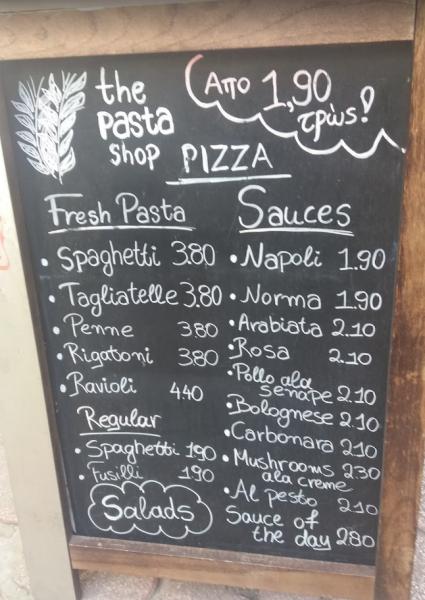 the
pasta
shop
Απο 1,90
τρώς!
PIZZA
Fresh Pasta
• Spaghetti 3.80
• Tagliatelle 3.80
• Penne 3.80
• Rigatoni 3.80
• Ravioli 4.40
Regular
• Spaghetti 1.90
• Fusilli 1.90
Salads
Sauces
• Napoli 1.90
• Norma 1.90
• Arabiata 2.10
• Rosa 2.10
• Pollo ala
senape 2.10
• Bolognese 2.10
• Carbonara 2.10
• Mushrooms 2.30
ala creme
• Al pesto 2.10
Sauce of
the day 2.80